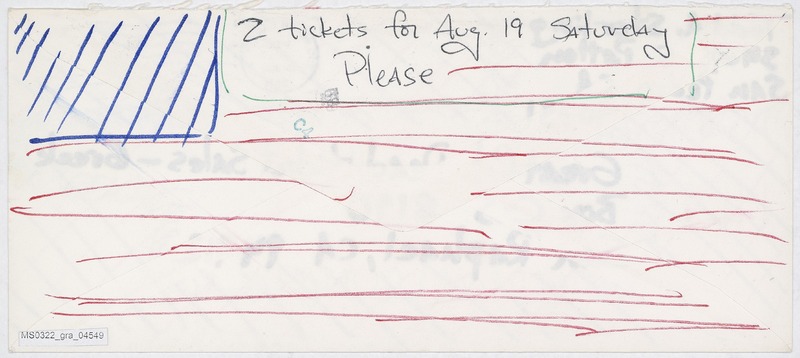 2 tickets for Aug. 19 Saturday
Please
MS0322_gra_04549